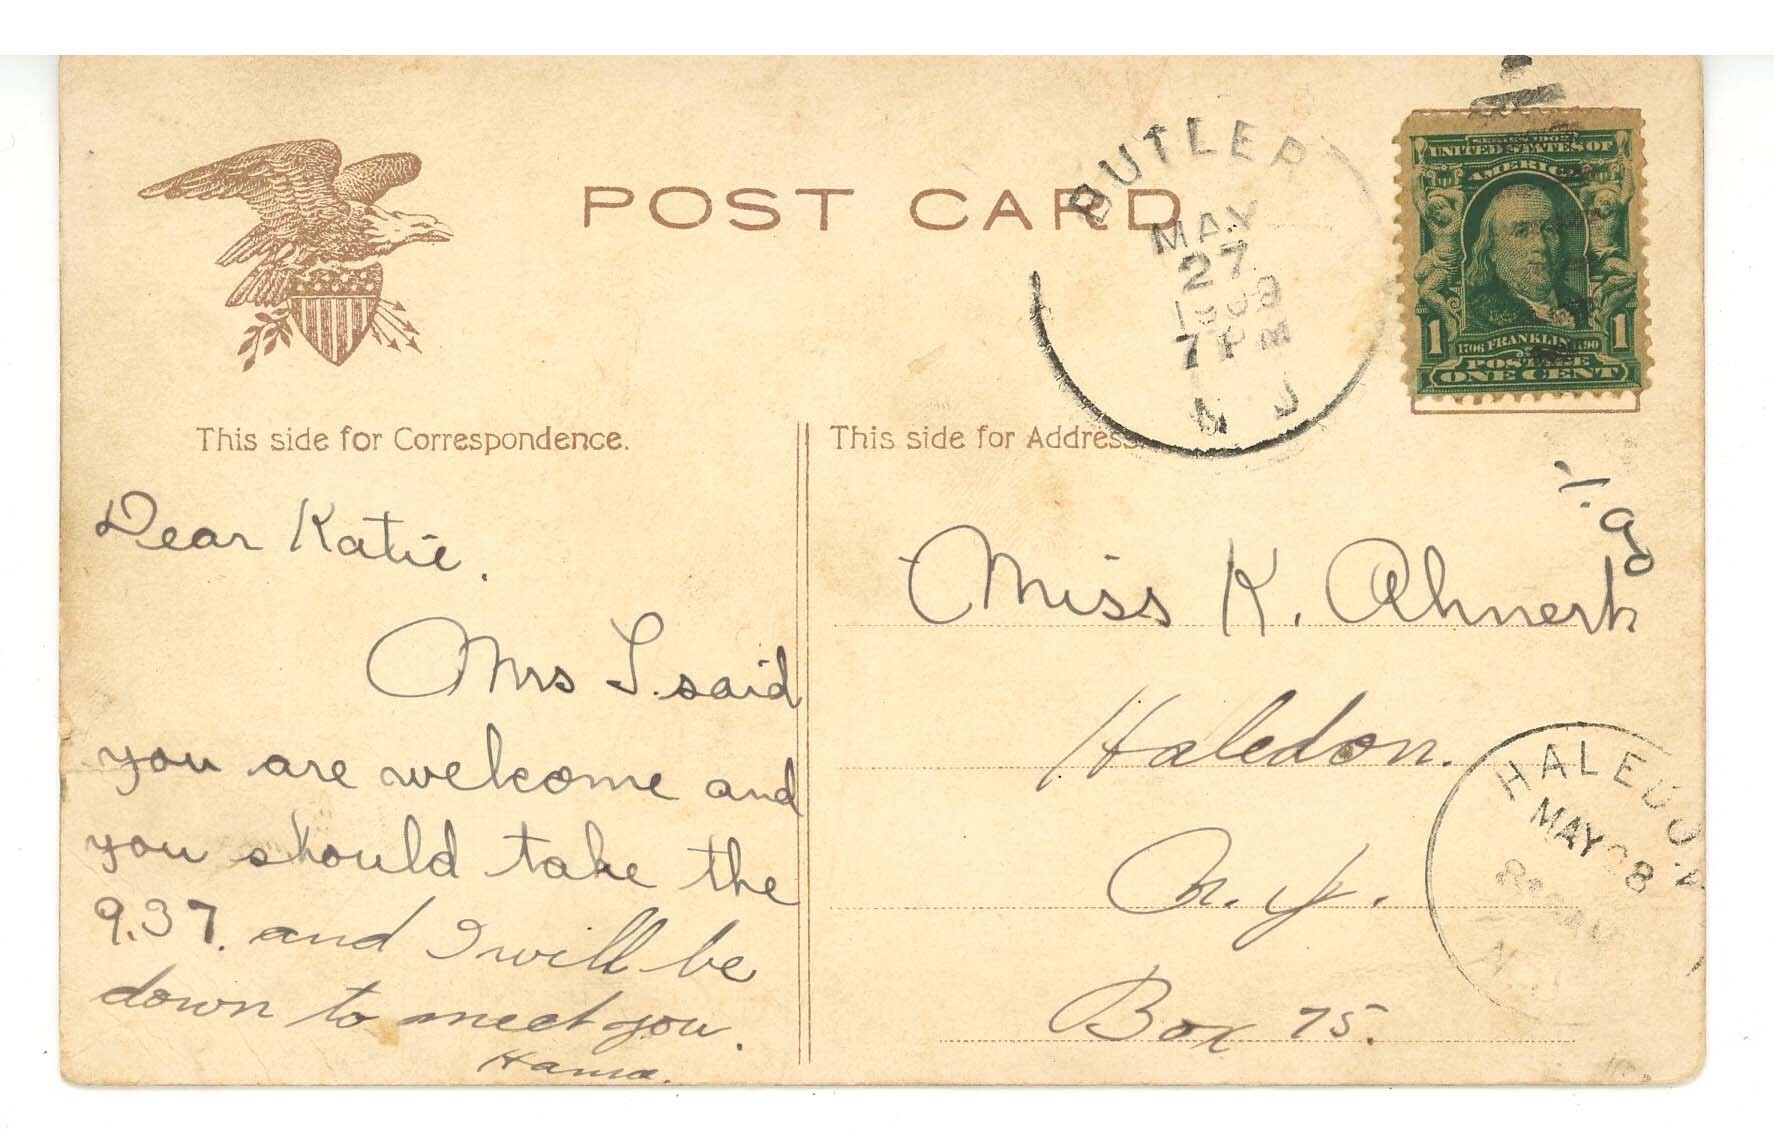 POST CARD
BUTLER
MAY
27
7 PM
N J
UNITED STATES OF
AMERICA
1 1
1706 FRANKLIN 1790
POSTAGE
ONE CENT
This side for Correspondence.
This side for Address.
Dear Katie.
Mrs I. said
you are welcome and
you should take the
9.37. and I will be
down to meet you.
Miss K. Ahnert
Haledon.
N. J.
Box 75.
HALEDON
MAY 28